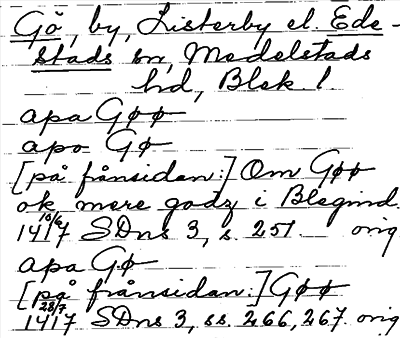 Gö, by, Listerby el. Ede-
stads sn, Medelstads
hd, Blek. l.
apa Gøø
apo Gø
[på frånsidan:] Om Gøø
ok mere godz i Blegind.
10/6 1417 SDns 3, s. 251 orig
apa Gø
[på frånsidan:] Gøø
28/7 1417 SDns 3, ss. 266, 267 orig